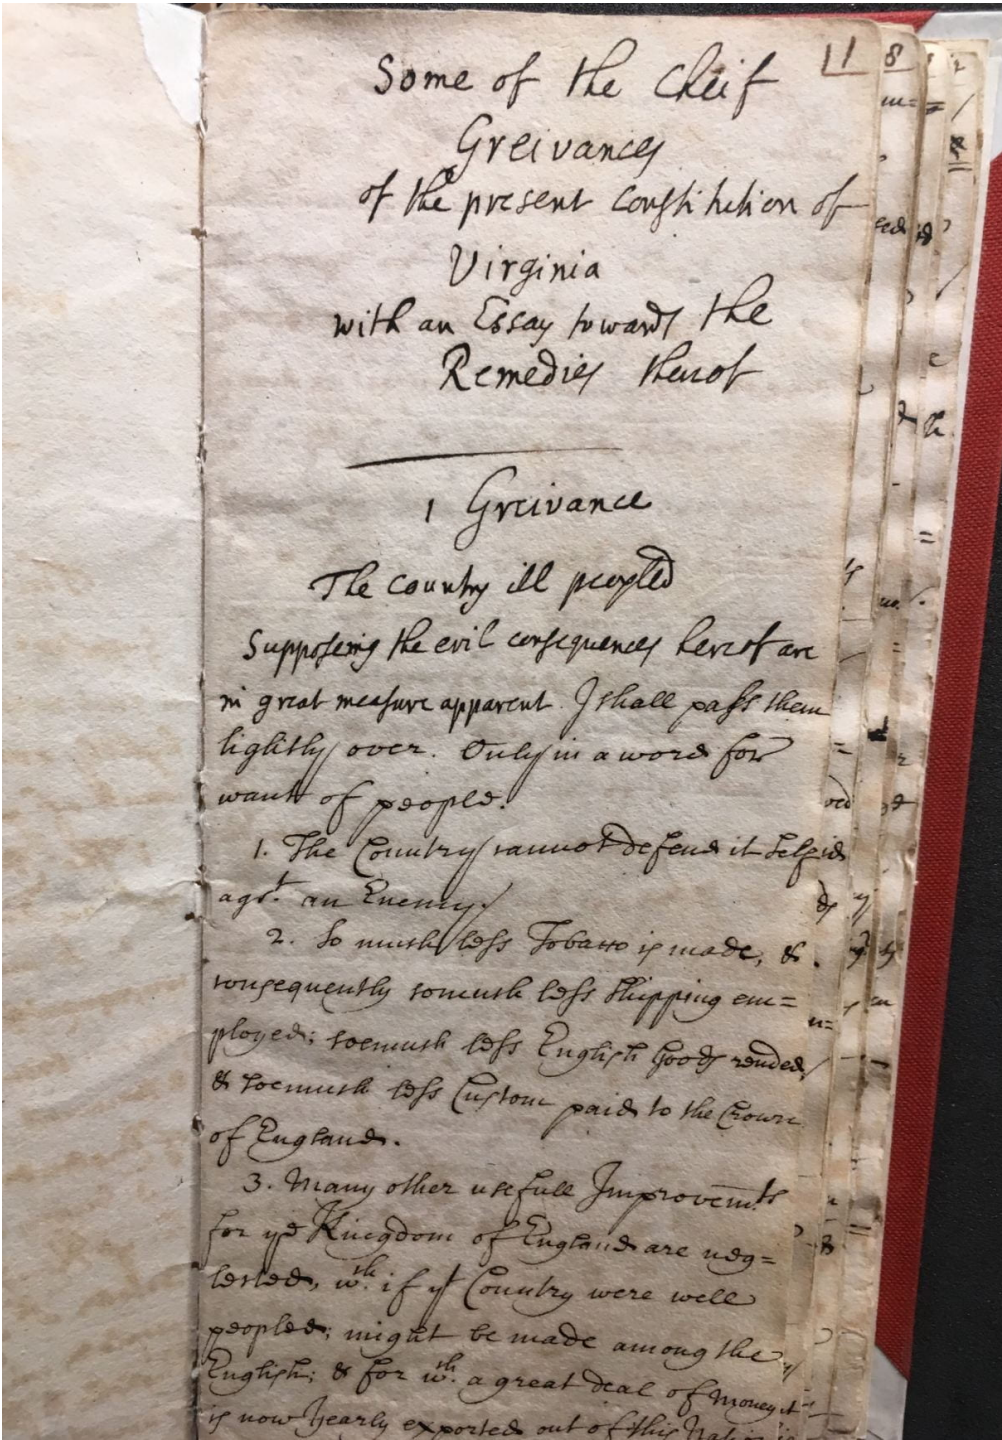 11
Some of the Cheif
Greivances
of the present constitution of
Virginia
with an Essay towards the
Remedies therof
1 Greivance
The country ill peopled
Supposeing the evil consequences hereof are
in great measure apparent. I shall pass them
lightly over. Only in a word for
want of people.
1. The Country cannot defend it self
agst. an Enemy.
2. So much less Tobacco is made, &
consequently somuch less Shipping em=
ployed; soemuch less English Goods vended,
& soemuch less Custom paid to the Crown
of England.
3. Many other usefull Improvemts
for ye Kingdom of England are neg=
lected, wch. if yt Country were well
peopled; might be made among the
English; & for wch. a great deal of money
is now yearly exported out of this Nation
8